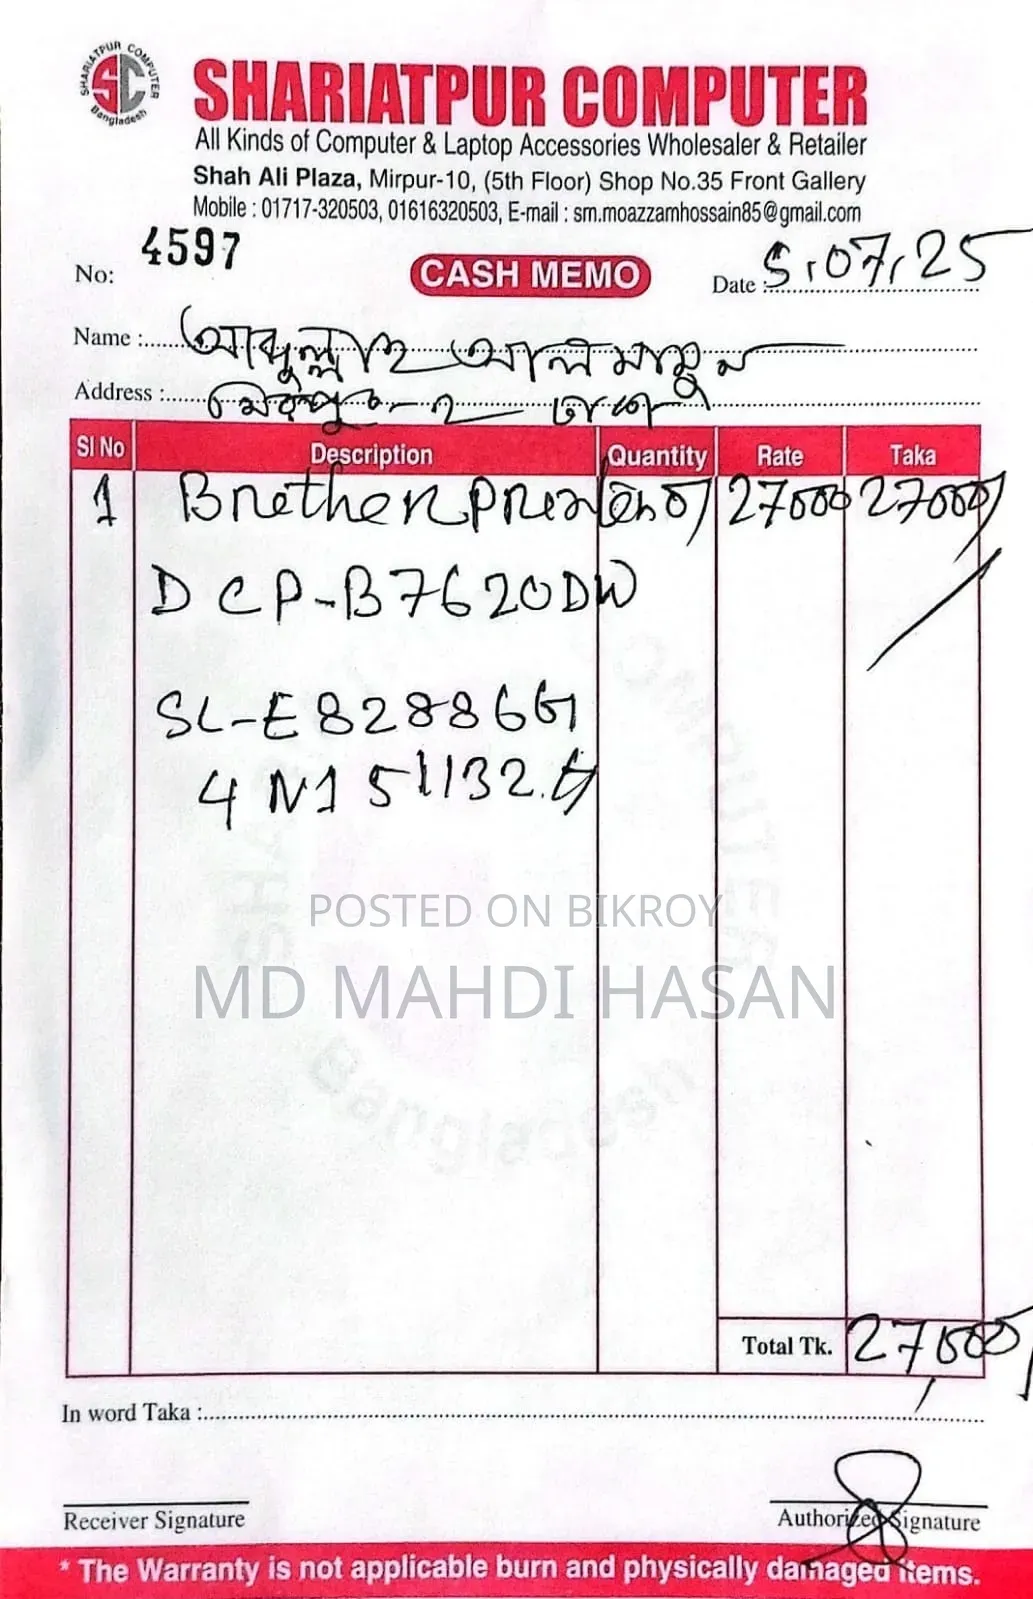 SHARIATPUR COMPUTER
Bangladesh
SC
SHARIATPUR COMPUTER
All Kinds of Computer & Laptop Accessories Wholesaler & Retailer
Shah Ali Plaza, Mirpur-10, (5th Floor) Shop No.35 Front Gallery
Mobile : 01717-320503, 01616320503, E-mail : sm.moazzamhossain85@gmail.com
No: 4597 CASH MEMO Date : 5.07.25
Name : আব্দুল্লাহ আল মামুন
Address : মিরপুর-২ ঢাকা
Sl No Description Quantity Rate Taka
1 Brother Printer 27000 27000/
DCP-B7620DW
SL-E82886G
4N151132.
POSTED ON BIKROY
MD MAHDI HASAN
Bangladesh
Total Tk. 27,000/
In word Taka :
Receiver Signature Authorized Signature
* The Warranty is not applicable burn and physically damaged items.